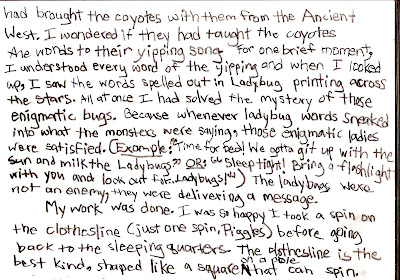 had brought the coyotes with them from the Ancient
West. I wondered if they had taught the coyotes
the words to their yipping song for one brief moment,
I understood every word of the yipping and when I looked
up, I saw the words spelled out in Ladybug printing across
the stars. All at once I had solved the mystery of those
enigmatic bugs. Because whenever ladybug words sneaked
into what the monsters were saying, those enigmatic ladies
were satisfied. (Example: "Time for bed! We gotta git up with the
sun and milk the Ladybugs." OR: "Sleep tight! Bring a flashlight
with you and look out for Ladybugs!") The ladybugs were
not an enemy, they were delivering a message.
My work was done. I was so happy I took a spin on
the clothesline (just one spin, Piggles) before going
back to the sleeping quarters. The clothesline is the
best kind, shaped like a square on a pole that can spin.